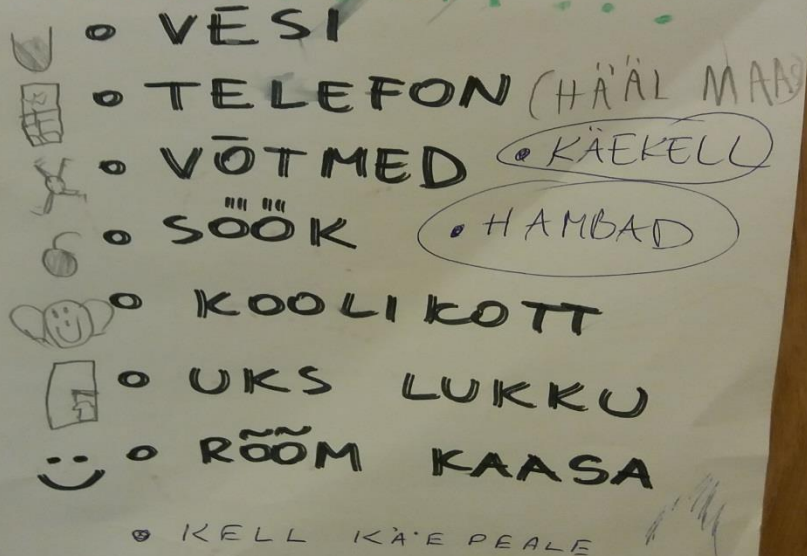 • VESI
• TELEFON (HÄÄL MAAS
• VÕTMED • KÄEKELL
• SÖÖK • HAMBAD
• KOOLIKOTT
• UKS LUKKU
• RÕÕM KAASA
• KELL KÄE PEALE